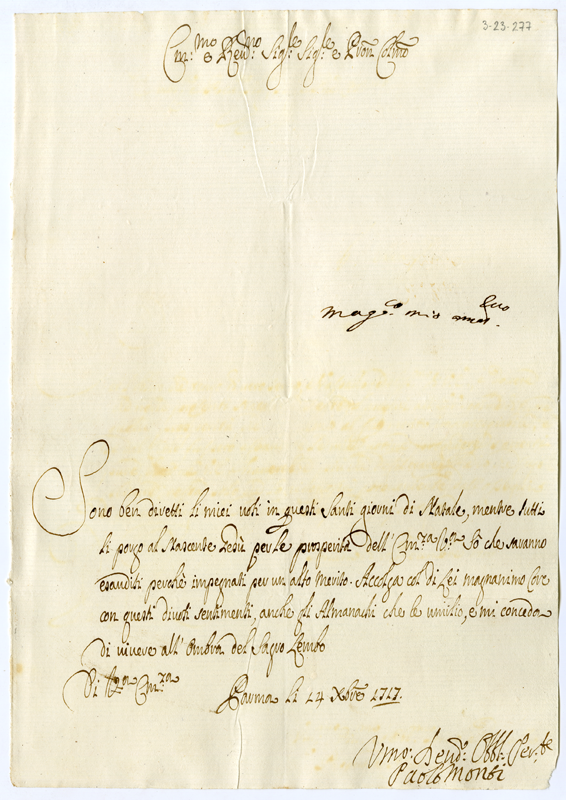 3-23-277
Em:mo e Rev:mo Sig:re Sig:re e Pron Colmo
Mag:co mio
Sono ben diretti li miei voti in questi Santi giorni di Natale, mentre tutti
li porgo al Nascente Gesù per le prosperità dell' Em:za V:ra Sò che saranno
esauditi perche impegnati per un alto Merito. Accolga col di Lei magnanimo Core
con questi divoti sentimenti, anche gli Almanachi che le umilio, e mi conceda
di vivere all' Ombra del Sagro Lembo
Di V:ra Em:za
Parma li 14 Xbre 1717.
Umo: Devo: Obb: Ser:re
Paolo Monti